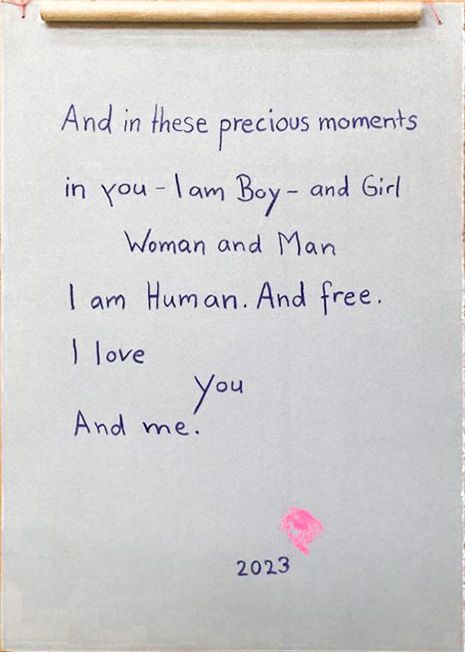 And in these precious moments
in you - I am Boy - and Girl
Woman and Man
I am Human. And free.
I love
you
And me.
2023